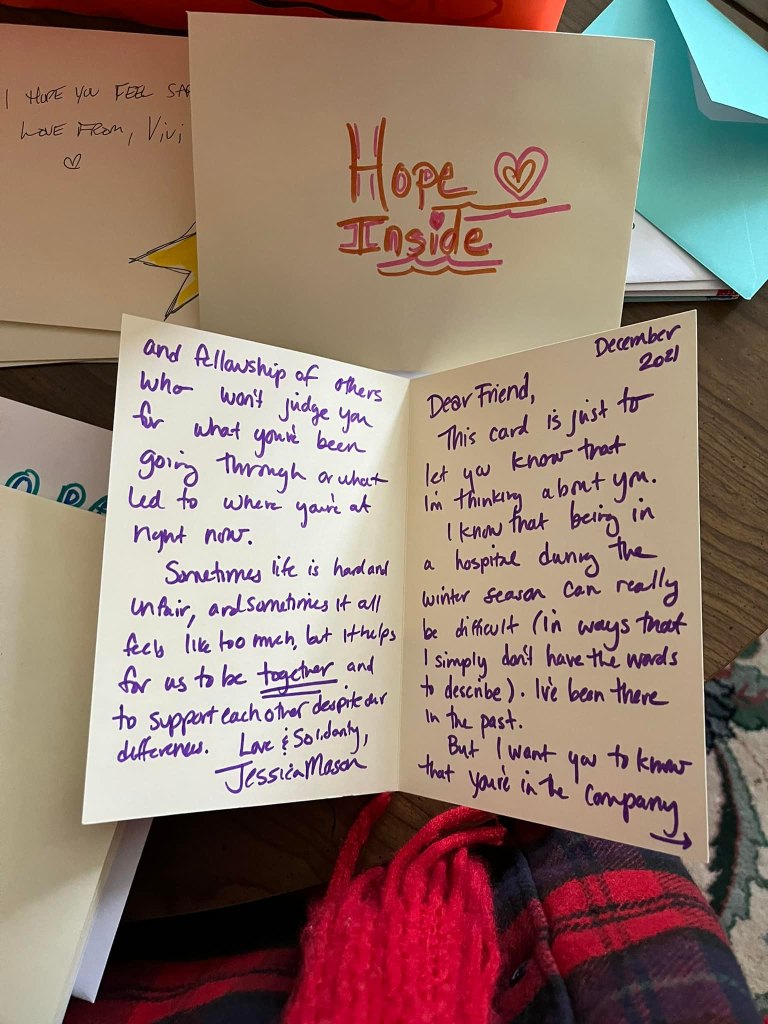 I HOPE YOU FEEL
LOVE FROM, Vivi
Hope
Inside
December
2021
Dear Friend,
This card is just to
let you know that
I'm thinking about you.
I know that being in
a hospital during the
winter season can really
be difficult (in ways that
I simply don't have the words
to describe). I've been there
in the past.
But I want you to know
that you're in the company
→
and fellowship of others
who won't judge you
for what you've been
going through or what
led to where you're at
right now.
Sometimes life is hard and
unfair, and sometimes it all
feels like too much, but it helps
for us to be together and
to support each other despite our
differences. Love & Solidarity,
Jessica Mason